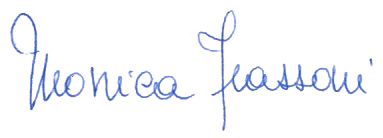 Monica Frassoni